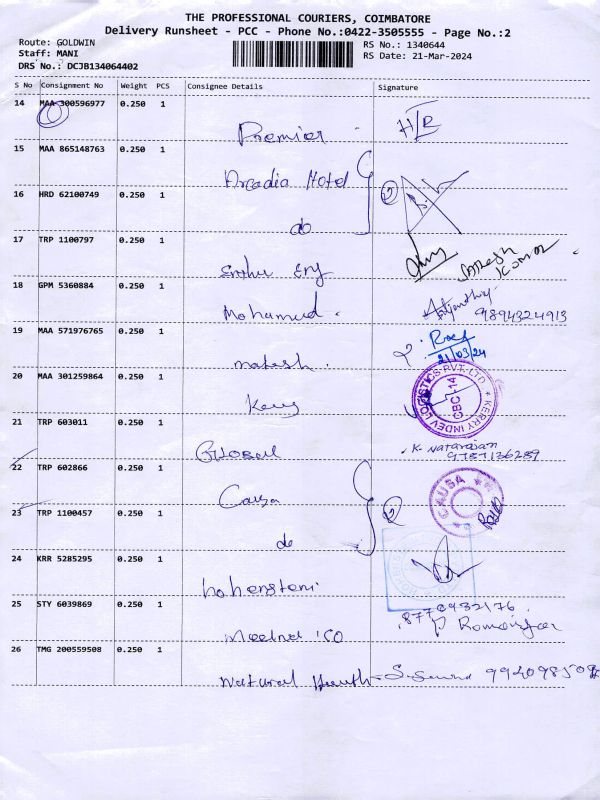 THE PROFESSIONAL COURIERS, COIMBATORE
Delivery Runsheet - PCC - Phone No.:0422-3505555 - Page No.:2
Route: GOLDWIN
Staff: MANI
DRS No.: DCJB134064402
RS No.: 1340644
RS Date: 21-Mar-2024
S No Consignment No Weight PCS Consignee Details Signature
14 MAA 300596977 0.250 1
Premier
15 MAA 865148763 0.250 1
Arcadia Hotel
16 HRD 62100749 0.250 1
do 2
17 TRP 1100797 0.250 1
18 GPM 5360884 0.250 1
Mohamed. 9894324913
19 MAA 571976765 0.250 1
21/03/24
20 MAA 301259864 0.250 1
KERRY INDEV LOGISTICS PVT. LTD
CBC-14
21 TRP 603011 0.250 1
Global K. Natarajan
9787136289
22 TRP 602866 0.250 1
Causa CAUSA
23 TRP 1100457 0.250 1
do 2
24 KRR 5285295 0.250 1
25 STY 6039869 0.250 1
26 TMG 200559508 0.250 1
Natural